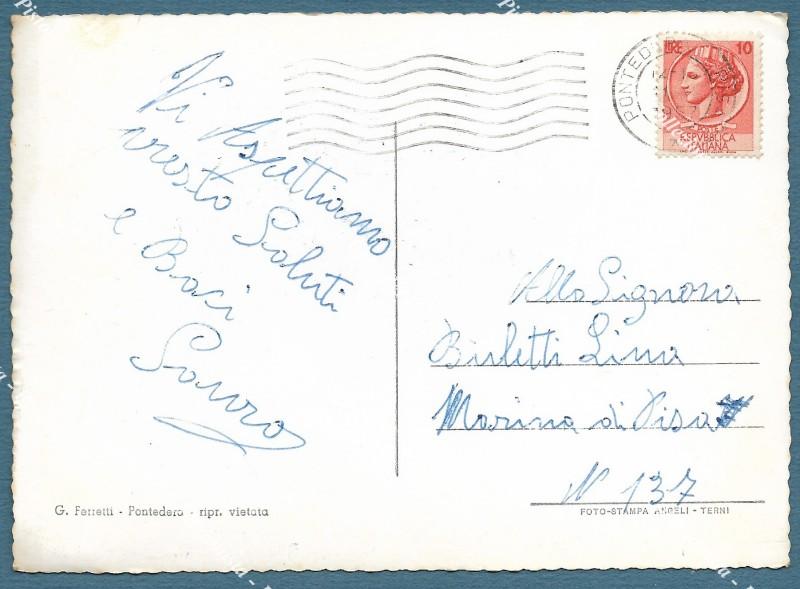 Vi Aspettiamo
presto Saluti
e Baci
Sauro
PONTEDE
LIRE 10
POSTE
REPVBBLICA
ITALIANA
Alla Signora
Burletti Lina
Marina di Pisa
N 137
G. Ferretti - Pontedera - ripr. vietata
FOTO-STAMPA ANGELI - TERNI